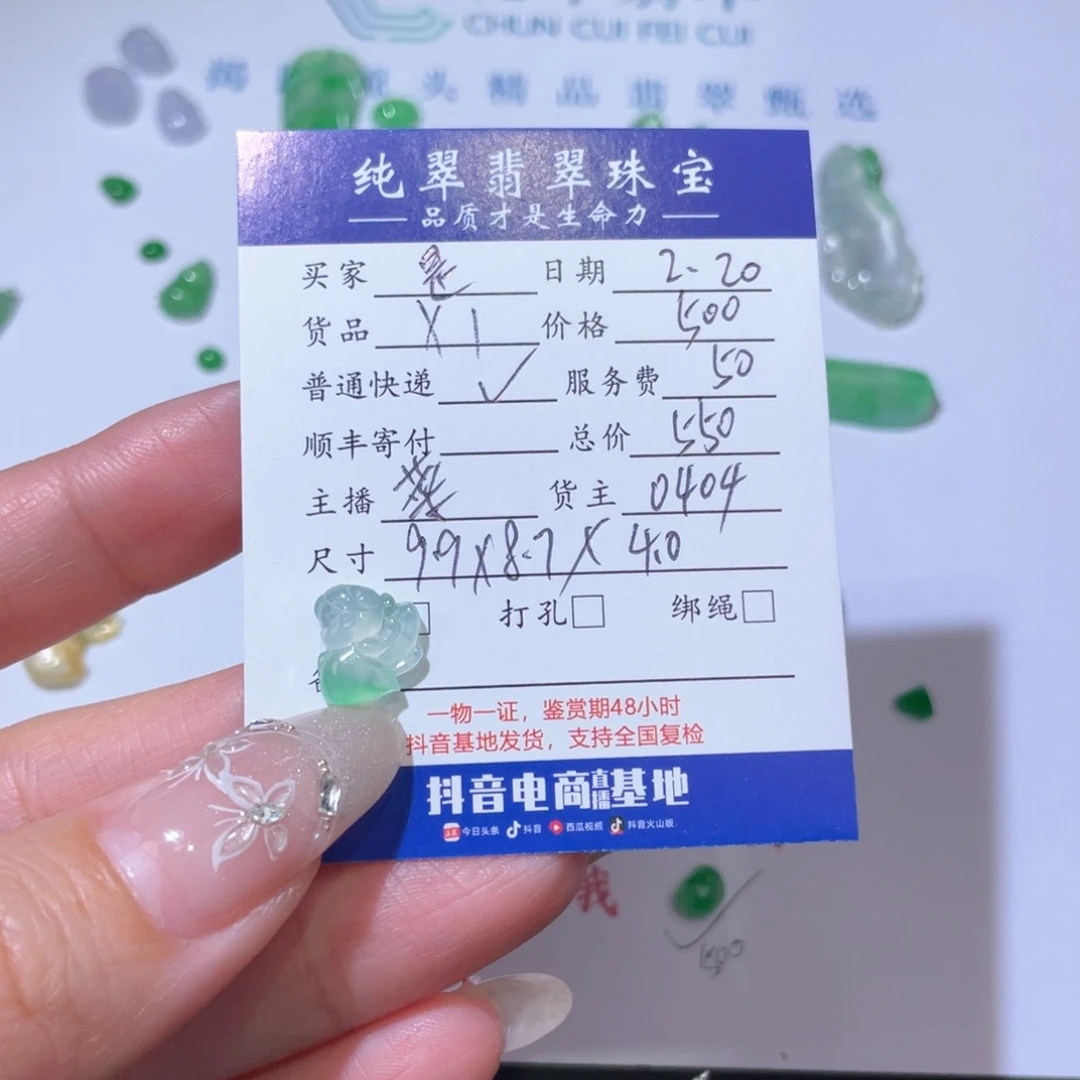 CHUN CUI FEI CUI
头精品翡翠甄选
纯翠翡翠珠宝
品质才是生命力
买家 日期 2.20
货品 X 1 价格 500
普通快递 ✓ 服务费 50
顺丰寄付 总价 550
主播 货主 0404
尺寸 9.9X8.7X4.0
打孔 绑绳
一物一证，鉴赏期48小时
抖音基地发货，支持全国复检
抖音电商直播基地
今日头条 抖音 西瓜视频 抖音火山版
我
500